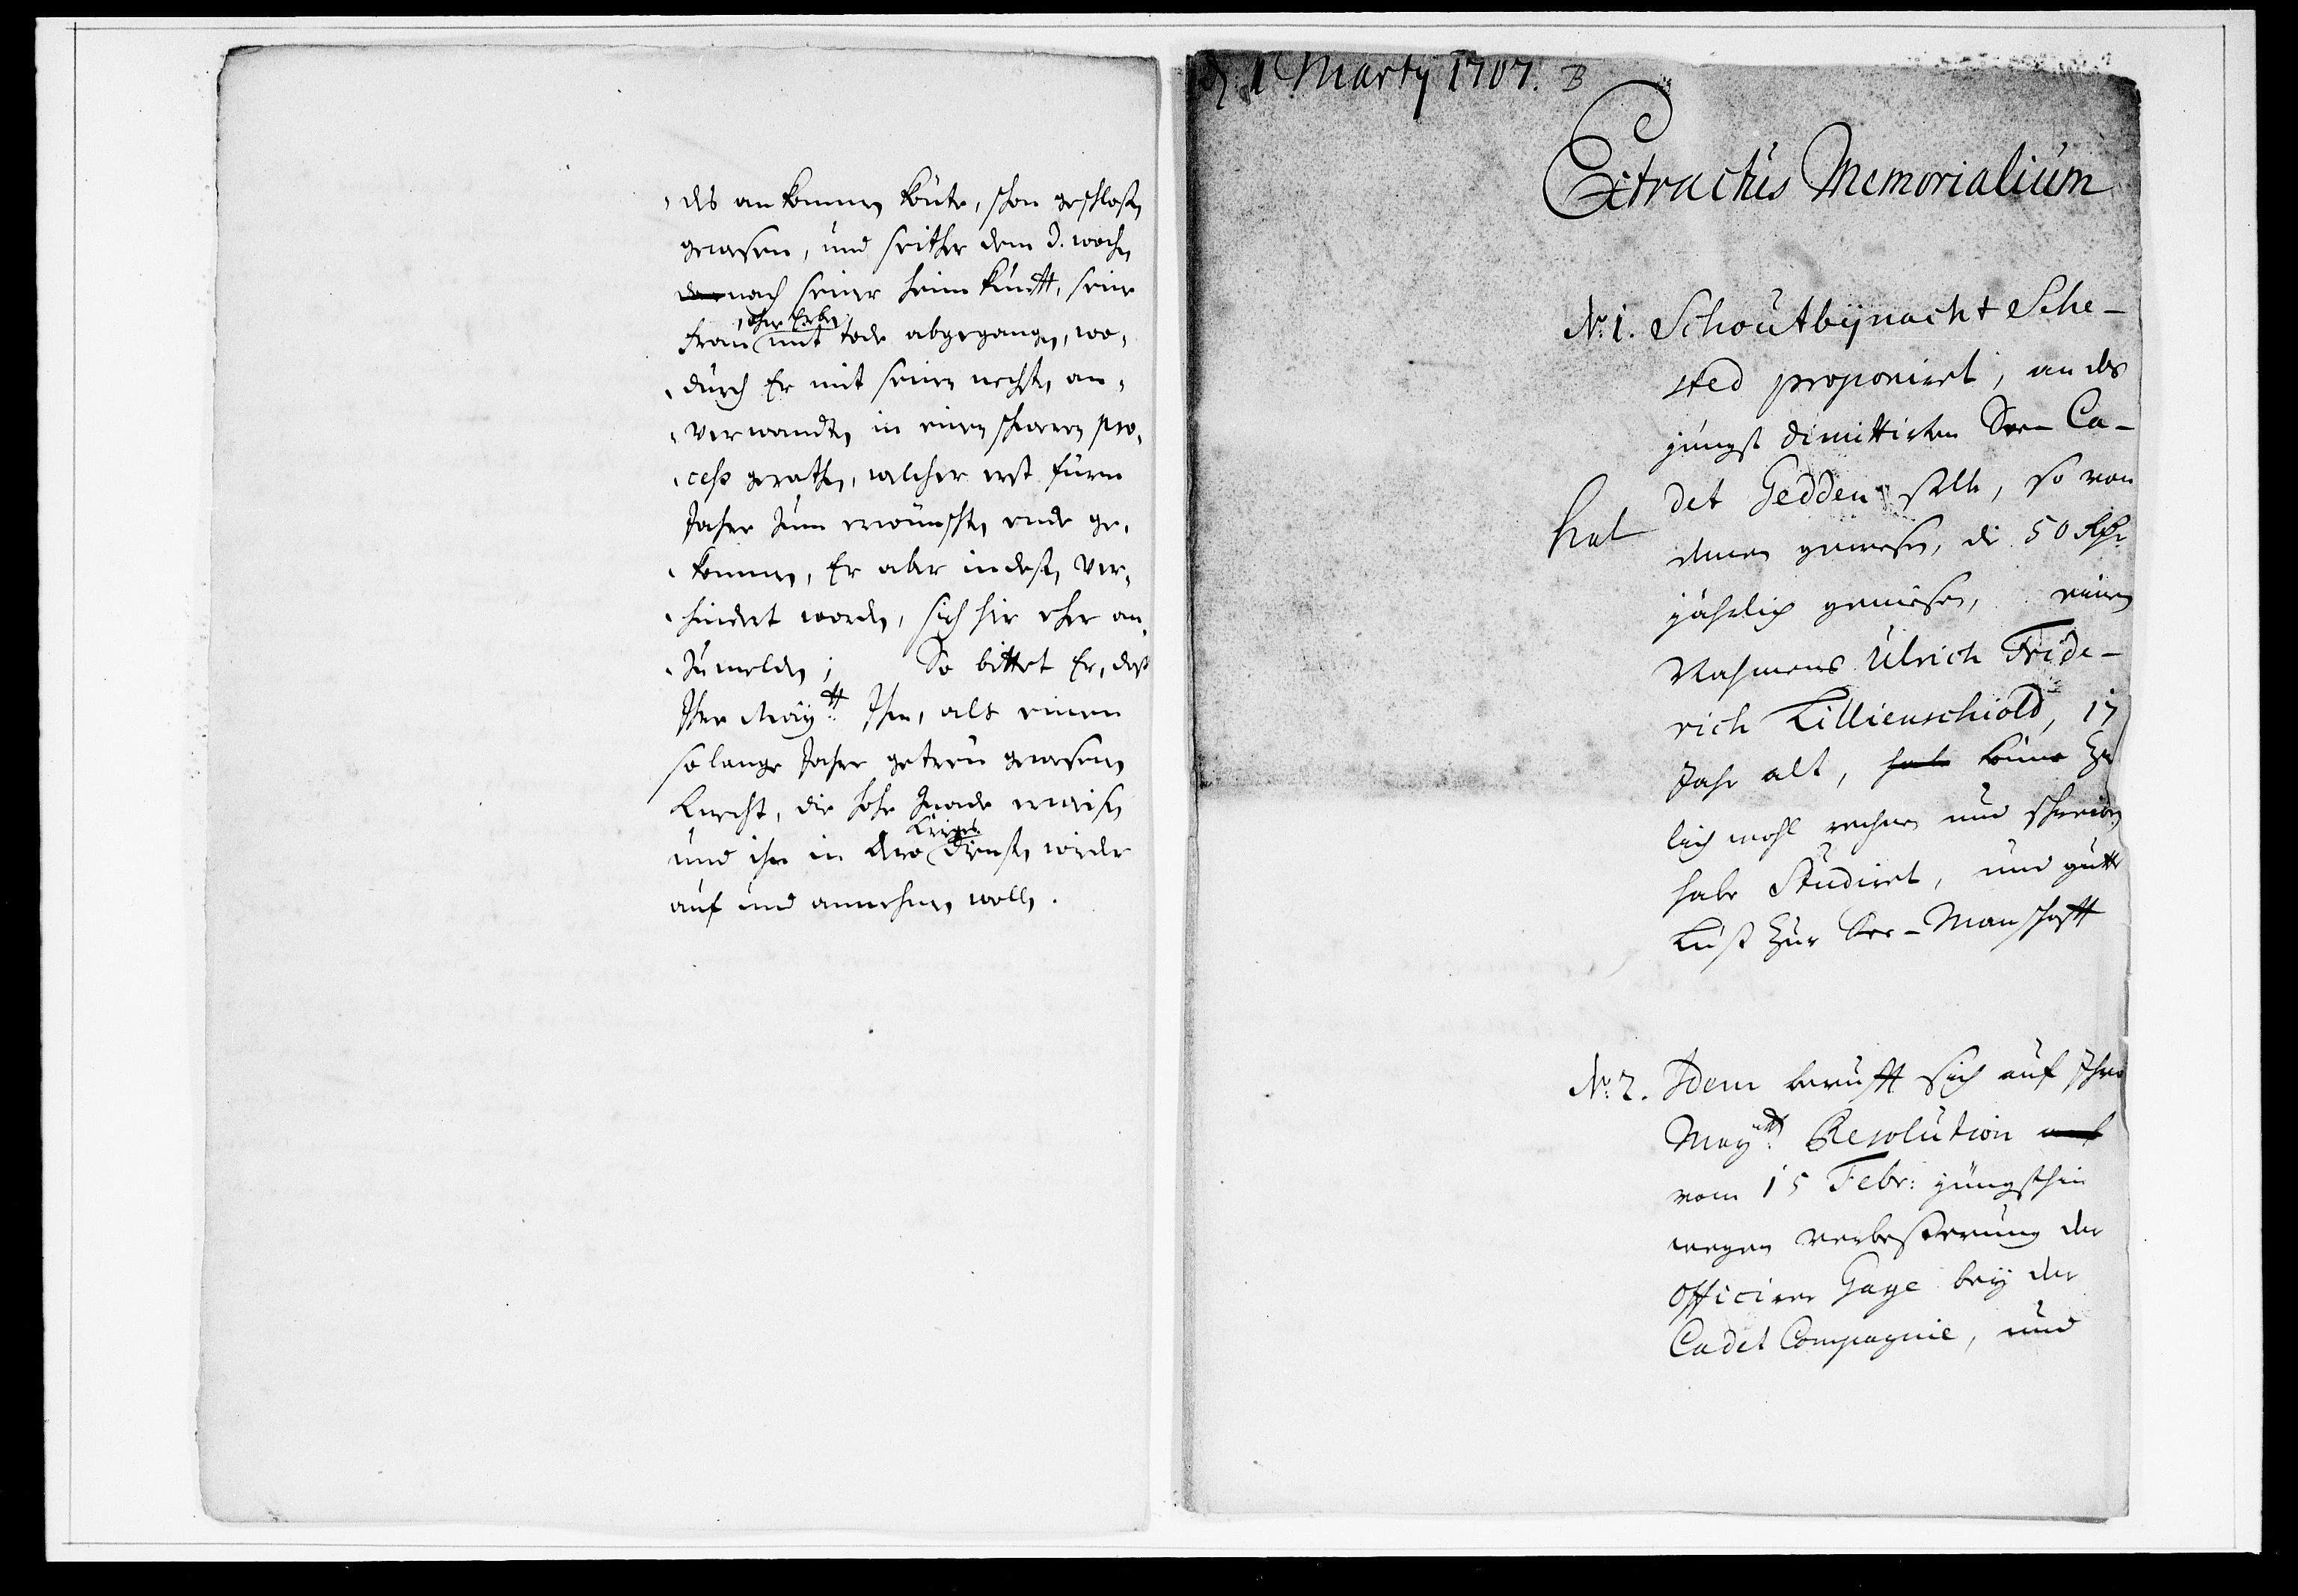 des ankommen könte, schon geschloßen
gewesen, und seither dem 3. wochen
der nach seiner heimkunfft, seine
ohne Erben
Frau mit tode abgegangen, wo-
durch Er mit seinen nechsten an-
verwandten in einen schweren pro-
cess gerathen, welcher erst fürm
Jahre zum erwünschten ende ge-
kommen, Er aber indeßen ver-
hindert worden, sich hier eher an-
zumelden; So bittet Er, daß
Ihre Maytt: Ihn, als einen
so lange Jahre getreu gewesenen
Knecht, die hohe Gnade erweisen
Krigs
und ihn in dero Diensten wieder
auf und annehmen wollen.
d. 1 Martij 1707. B
Extractus Memorialium
No: 1. Schoutbynacht Sche-
sted proponiret, an des
jüngst dimittirten See-Ca-
det Gedden stelle, so von
hat
denen gewesen, die 50 Rthr
jährlich geniessen, einen
Nahmens Ulrich Fride-
rich Lillienschiold, 17
Jahr alt, habe könne Zi
lich wohl rechnen und schreiben
habe Studiret, und gutte
Lust zur See-Manschafft
No: 2. Idem berufft sich auf Ihro
Maytt: Resolution auf
vom 15 Febr: jüngsthin
wegen verbesserung der
Officirer Gage bey der
Cadet Compagnie, und